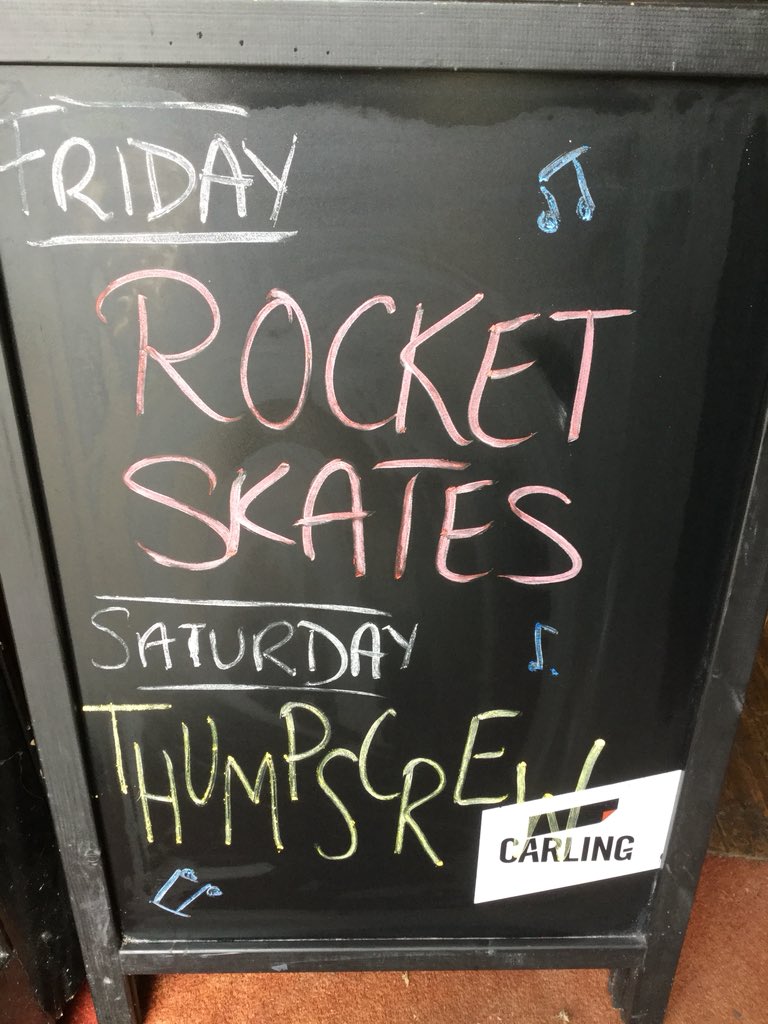 FRIDAY
ROCKET
SKATES
SATURDAY
THUMPSCREW
CARLING